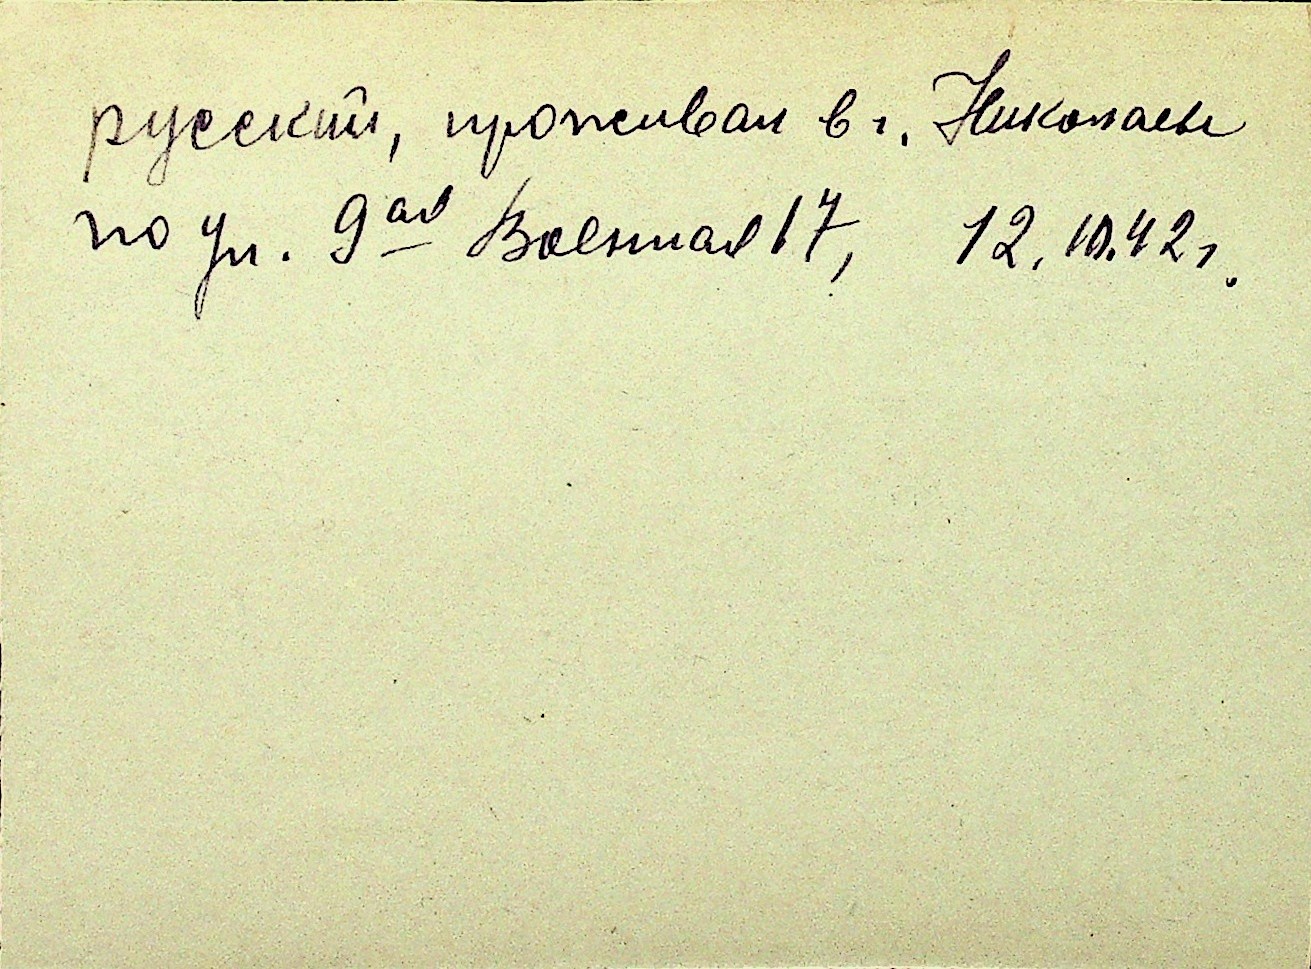 русский, проживал в г. Николаеве
по ул. 9ая Военная 17, 12.10.42г.